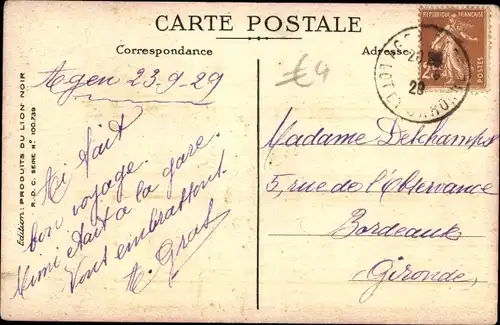 CARTE POSTALE
Correspondance
Adresse
REPUBLIQUE FRANÇAISE
POSTES
LOT-ET-GARONNE
29
£4
Agen 23.9.29
Ai fait
bon voyage.
Mimi était à la gare.
Vous embrassons.
Madame Delchamps
5, rue de l'Observance
Bordeaux
Gironde
Edition: PRODUITS DU LION NOIR
R.D.C. SEINE Nº 100.739